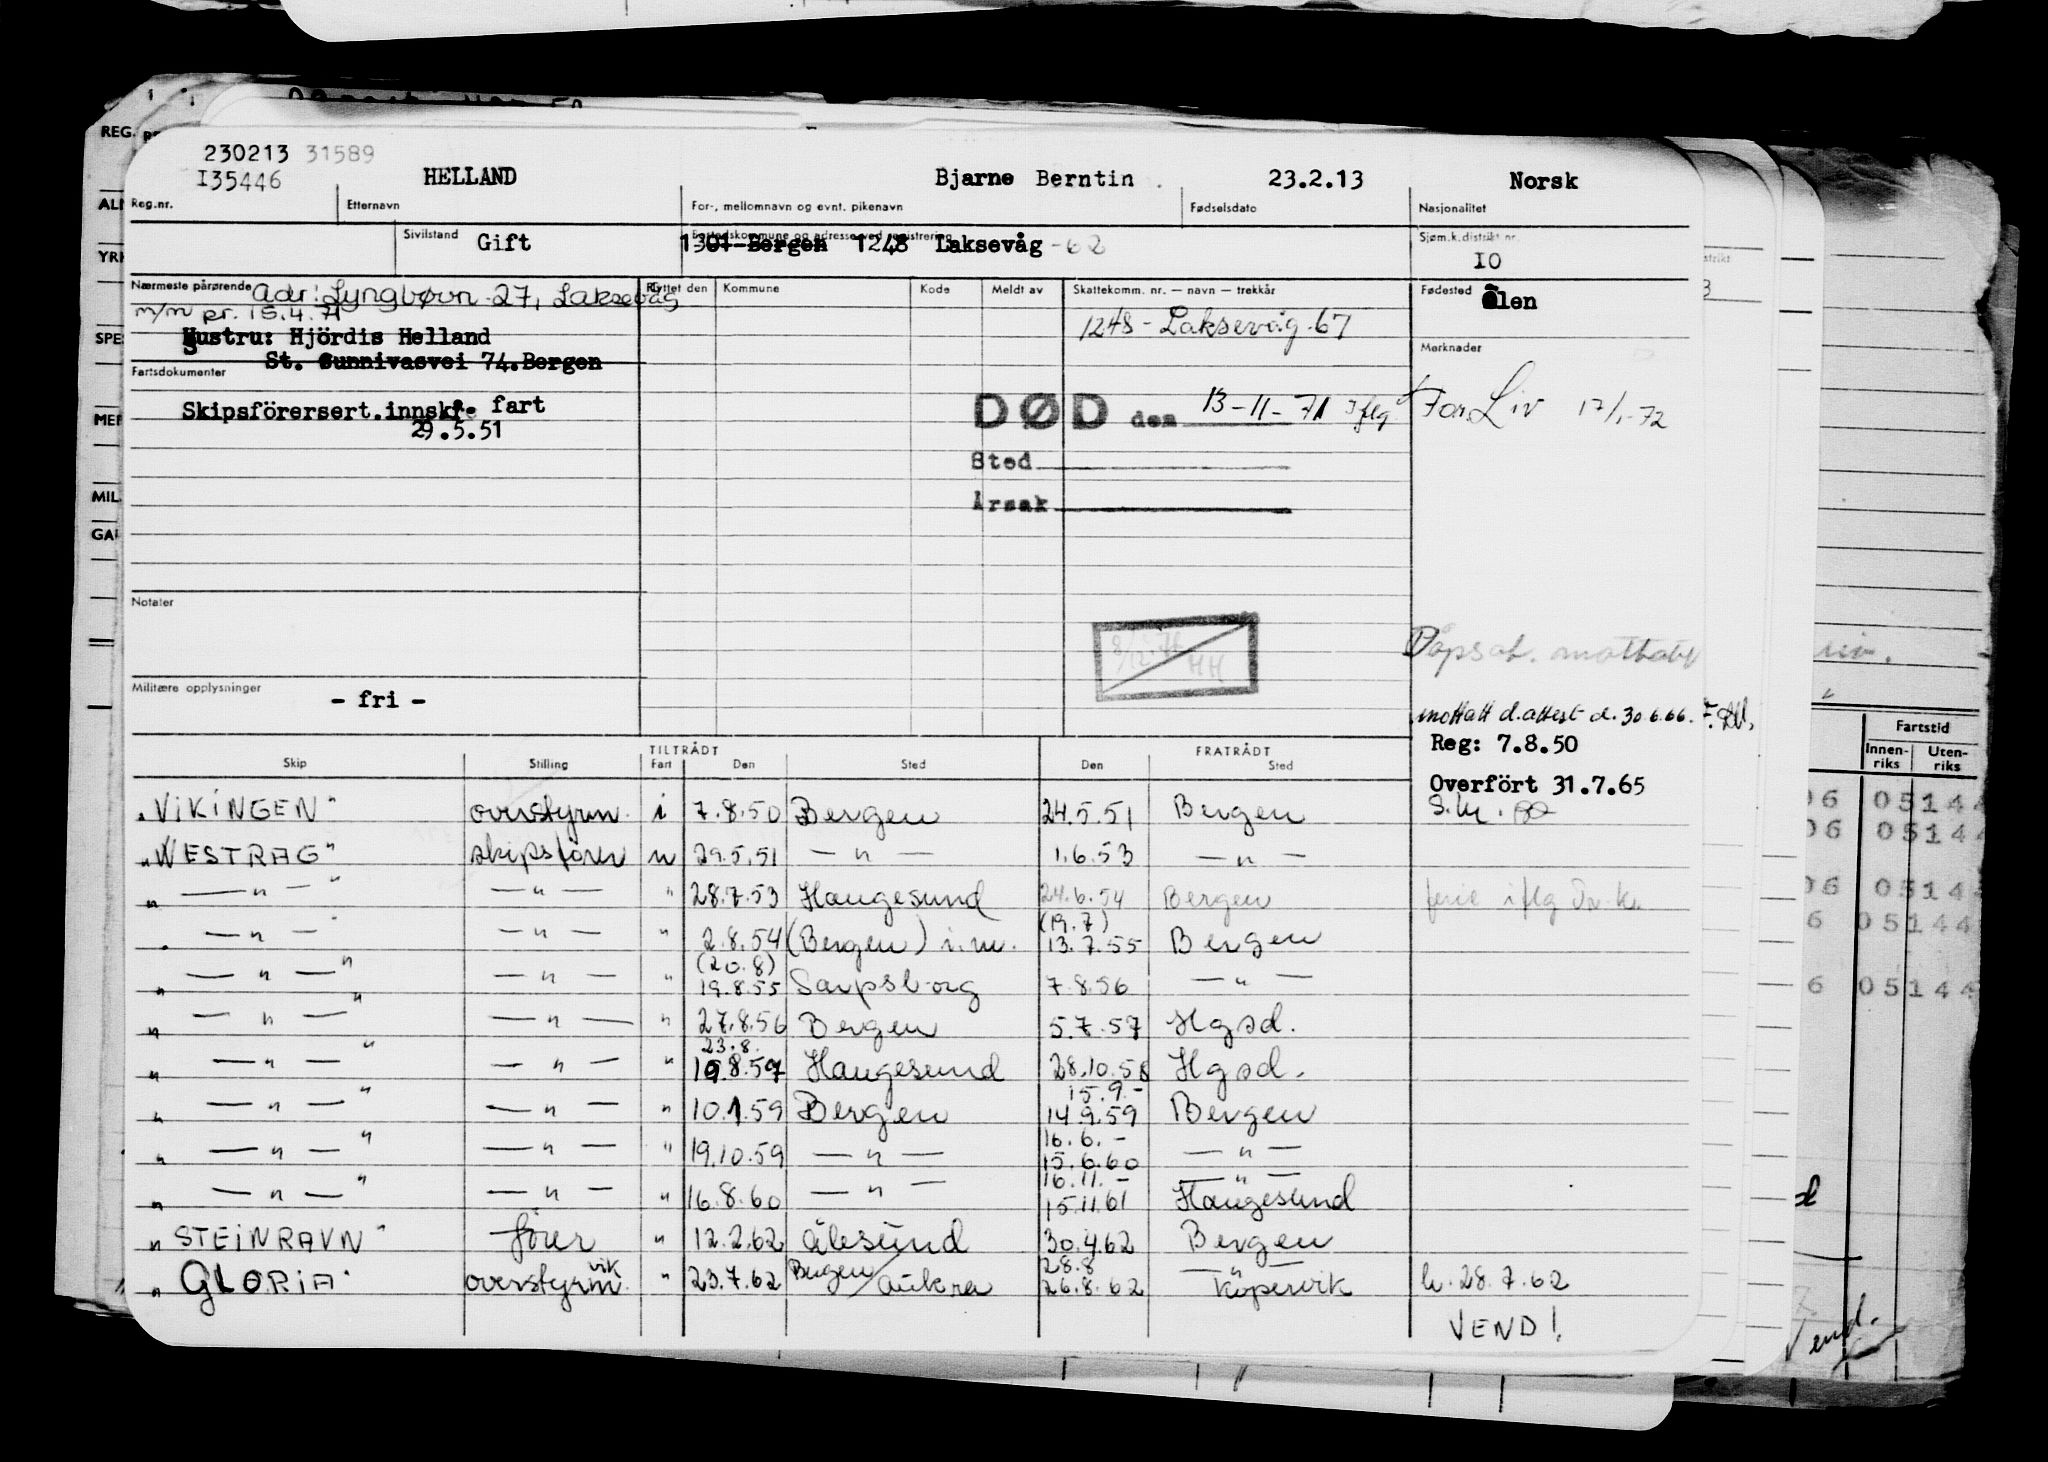 230213 31589
I35446 HELLAND Bjarne Berntin 23.2.13 Norsk
Reg.nr. Etternavn For-, mellomnavn og evnt. pikenavn Fødselsdato Nasjonalitet
Sivilstand Gift Bostedskommune og adresse ved registrering 1301 Bergen 1248 Laksevåg -62 Sjøm.k.distrikt nr. IO
Nærmeste pårørende Adr: Lyngbøvn. 27, Laksevåg Flyttet den Kommune Kode Meldt av Skattekomm. nr. — navn — trekkår Fødested Ølen
m/m pr. 15.4.71
Hustru: Hjördis Helland 1248 - Laksevåg - 67
St. Sunnivasvei 74. Bergen Merknader
Fartsdokumenter
Skipsförersert.innskr. fart
29.5.51
DØD den 13-11-71 iflg For. Liv 17/1-72
Sted
Årsak
Notater
8/12-76 HH
Dopsat. mottatt
Militære opplysninger
- fri -
mottatt d.attest d. 30.6.66.
Reg: 7.8.50
Overfört 31.7.65
TILTRÅDT FRATRÅDT
Skip Stilling Fart Den Sted Den Sted
"VIKINGEN" overstyrm. i 7.8.50 Bergen 24.5.51 Bergen
"WESTRAG" skipsförer n 29.5.51 — " — 1.6.53 — " —
" — " — " — " — " 28.7.53 Haugesund 24.6.54 Bergen ferie iflg
(19.7)
— " — " — " — " 2.8.54 (Bergen) i.m. 13.7.55 Bergen
(20.8)
" — " — " — " — " 19.8.55 Sarpsborg 7.8.56 — " —
" — " — " — " — " 27.8.56 Bergen 5.7.57 Hgsd.
23.8.
" — " — " — " — " 19.8.57 Haugesund 28.10.58 Hgsd.
15.9.-
" — " — " — " — " 10.1.59 Bergen 14.9.59 Bergen
16.6.-
" — " — " — " — " 19.10.59 — " — 15.6.60 — " —
16.11.- — " —
" — " — " — " — " 16.8.60 — " — 15.11.61 Haugesund
"STEINRAVN" förer " 12.2.62 Ålesund 30.4.62 Bergen
vik 28.8 — " —
"GLORIA" overstyrm. " 23.7.62 Bergen/Aukra 26.8.62 Kopervik h. 28.7.62
VEND!
REG.
YR
SPE
MIL.
Fartstid
Innen-riks Uten-riks
06 05144
06 05144
06 05144
6 05144
6 05144
Vend.